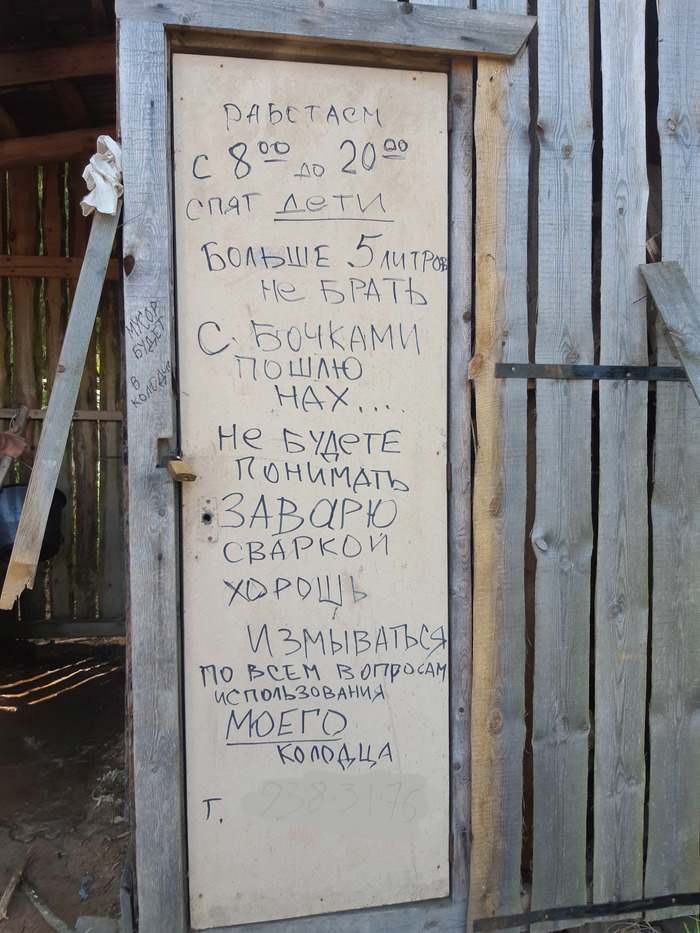 РАБОТАЕМ
С 8⁰⁰ ДО 20⁰⁰
СПЯТ ДЕТИ
БОЛЬШЕ 5 ЛИТРОВ
НЕ БРАТЬ
С БОЧКАМИ
ПОШЛЮ
НАХ....
НЕ БУДЕТЕ
ПОНИМАТЬ
ЗАВАРЮ
СВАРКОЙ
ХОРОЩЬ
ИЗМЫВАТЬСЯ
ПО ВСЕМ ВОПРОСАМ
ИСПОЛЬЗОВАНИЯ
МОЕГО
КОЛОДЦА
Т.
МУСОР
БУДЕТ
В
КОЛОДЦЕ